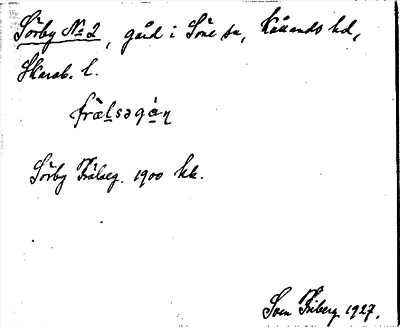 Sörby No 2, gård i Söne sn, Kållands hd,
Skarab. l.
frälsəgán
Sörby Frälseg. 1900 kk.
Sven Friberg 1927.